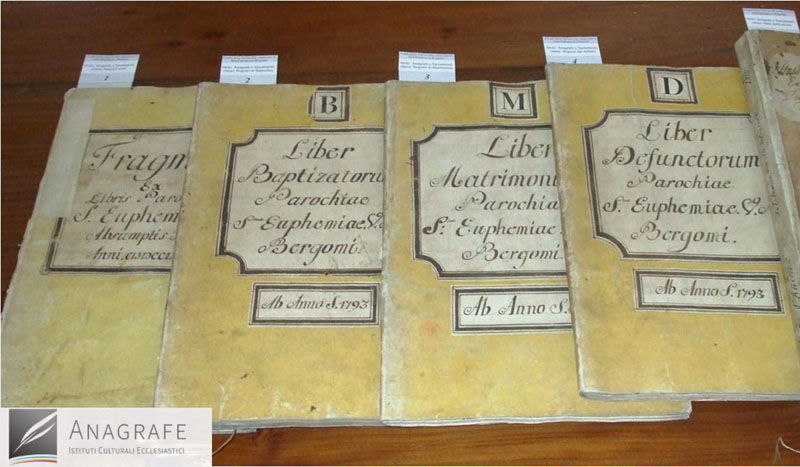 1
Fragm
Ex
Libris Paro
S. Euphemi
Abreptis
Anni
2
B
Liber
Baptizatoru
Parochiae
S.ae Euphemiae V.
Bergomi.
Ab Anno S. 1793
3
M
Liber
Matrimoni
Parochia
S.ae Euphemiae
Bergomi.
Ab Anno S.
4
D
Liber
Defunctorum
Parochiae
S.ae Euphemiae V.
Bergomi.
Ab Anno S. 1793
ANAGRAFE
ISTITUTI CULTURALI ECCLESIASTICI